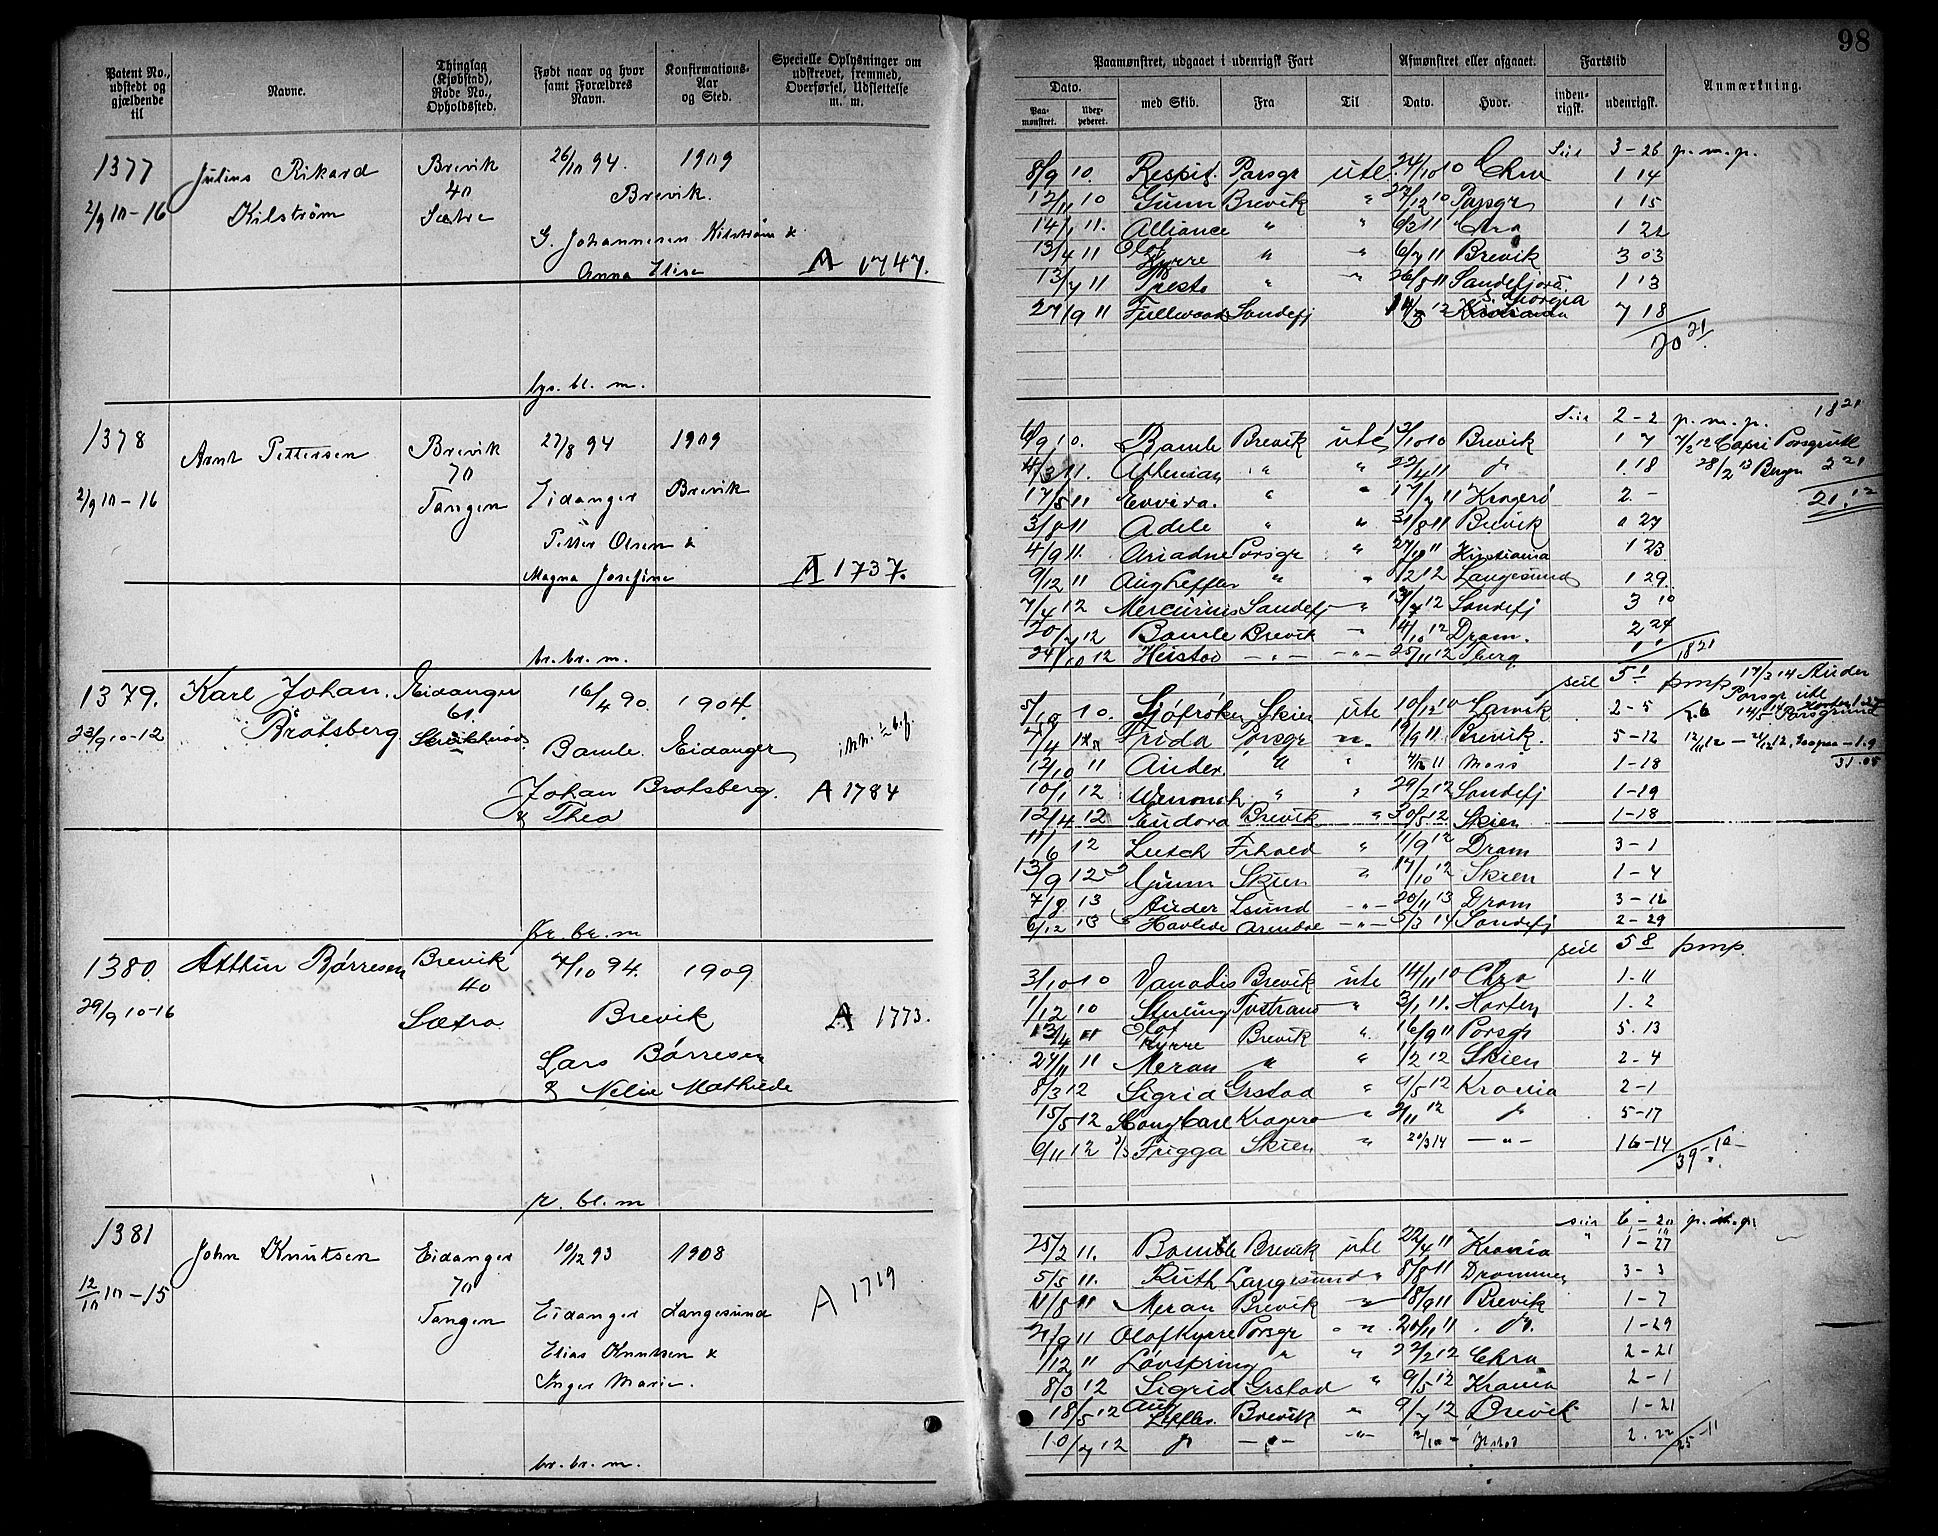 98
Patent No., udstedt og gjældende til
Navne.
Thinglag (Kjøbstad), Rode No., Opholdssted.
Født naar og hvor samt Forældres Navn.
Konfirmations-Aar og Sted.
Specielle Oplysninger om udskrevet, fremmed, Overførsel, Udslettelse m. m.
Paamønstret, udgaaet i udenrigsk Fart
Afmønstret eller afgaaet.
Fartstid
Anmærkning.
Dato.
med Skib.
Fra
Til
Dato.
Hvor.
inden-rigsk.
udenrigsk.
Paa-mønstret.
1377
Julius Rikard Kilstrøm
2/9 10-16
Brevik
40
Sætre
26/10 94.
1909
Brevik.
G. Johannesen Kilstrøm &
Anna Elise
A 1747.
bys. bl. m.
3-26 p. m. p.
8/9 10. Respit. Porsgr ute 24/10 10 Chra 1 14
12/11 10 Gunn Brevik " 27/12 10 Porsgr 1 15
14/1 11. Alliance " " Chra 1 22
13/4 11 Olof Kyrre " " 6/7 11 Brevik 3 03
13/7 11 Presto " " 26/8 11 Sandefjord. 1 13
27/9 11 Fullwood Sandefj 7 18
20 21
1378
Arnt Pettersen
2/9 10-16
Brevik
70
Tangen
27/8 94
1909
Eidanger Brevik
Petter Olsen &
Magna Josefine
A 1737.
br. br. m.
2-2 p. m. p. 18 21
6/9 10. Bamle Brevik ute 3/10 10 Brevik 1 7
7/12 12 Capri Porsgr ute
4/3 11. Athenian " " 22/4 11 1 18
28/2 13 Bergen 2 21
17/5 11 " " 17/7 11 Kragerø 2 -
21.12
3/8 11 Adele " " 31/8 11 Brevik 0 27
4/9 11. Ariadne Porsgr " 27/10 11 Kristiania 1 23
9/12 11 Aug Leffler " " 8/2 12 Langesund 1 29
7/4 12 Mercurius Sandefj " 17/7 12 Sandefj 3 10
20/7 12 Bamle Brevik " 14/10 12 Dram. 2 24
24/10 12 Heistad -"- -"- 25/11 12 Tberg 1 1
18 21
1379.
Karl Johan Brotsberg
23/9 10-12
Eidanger
61.
16/4 90.
1904.
Bamle. Eidanger
Johan Brotsberg
& Thea
A 1784
br. br. m
seil 5 1 pmp
17/3 14 Auder
Porsgr ute
5/10 10. Sjøfrøken Skien ute 10/12 10 Larvik 2-5
7/4 Frida Porsgr " 19/9 11 Brevik. 5-12
12/10 11 Auder. " " Moss 1-18
31.05
10/1 12 " " 29/2 12 Sandefj 1-19
12/4 12 Eudora Brevik " 30/5 12 Skien 1-18
11/6 12 " 11/9 12 Dram 3-1
13/9 12 Gunn Skien " 17/10 12 Skien 1-4
7/8 13 Auder Lsund -"- 20/11 13 Dram 3-12
6/12 13 Arendal -"- 5/3 14 Sandefj 2-29
1380.
Arthur Børresen
29/9 10-16
Brevik
40
Sætra
7/10 94.
1909
Brevik
Lars Børresen
& Neline Mathilde
A 1773.
br. bl. m
seil 5 8 pmp.
3/10 10 Vanadis Brevik ute 14/11 10 Chra 1-11
1/12 10 Sterling " 3/1 11. Horten 1-2
13/4 11 Olof Kyrre Brevik " 16/9 11 Porsgr 5.13
27/11 11 Meran " " 1/2 12 Skien 2-4
8/3 12 Sigrid Grstad " 9/5 12 Krania 2-1
15/5 12 Kong Carl Kragerø " 2/11 12 5-17
6/11 12 Frigga Skien " 20/3 14 -"- 16-14
39-10
1381
John Knutsen
12/10 10-15
Eidanger
70
Tangen
10/12 93
1908
Eidanger Langesund
Elias Knutsen &
Inger Marie.
A 1719
br. br. m.
6-20 p. m. p.
25/2 11. Bamble Brevik ute 22/4 11 Krania 1-27
5/5 11. Ruth Langesund " 8/8 11 Drammen 3-3
11/8 11 Meran Brevik " 18/9 11 Brevik 1-7
21/9 11 Olof Kyrre Porsgr " 20/11 11 1-29
1/12 11 Løvspring " " 22/2 12 Chra 2-21
8/3 12 Sigrid Grstad " 9/5 12 Krania 2-1
18/5 12 Aug Leffler. Brevik " 9/7 12 Brevik 1-21
10/7 12 -"- -"- 2.22
25-11